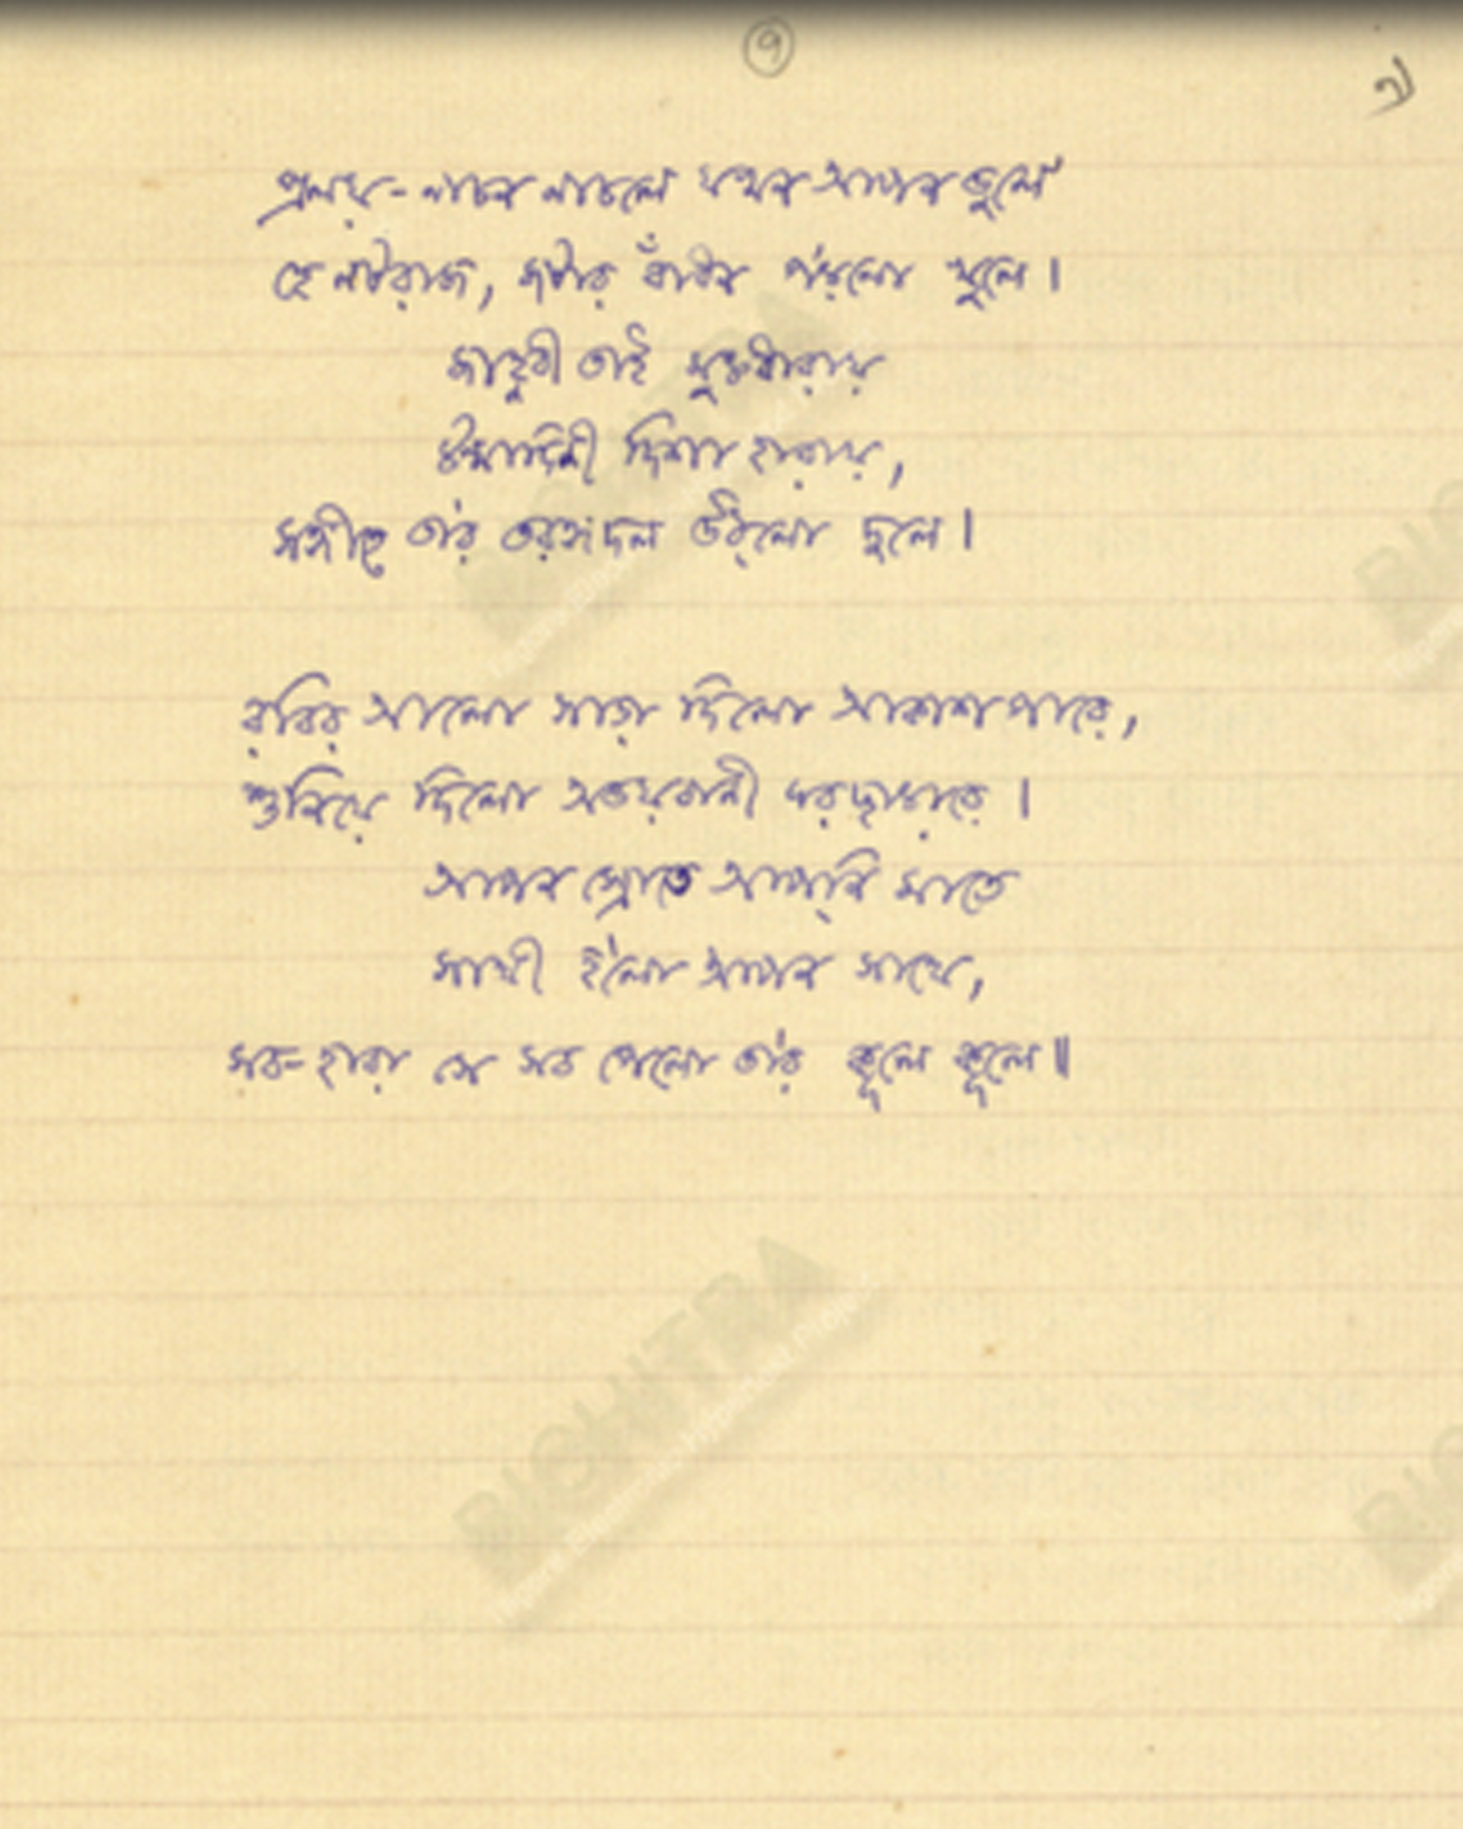 ৭
প্রলয়-নাচন নাচলে যখন আপন ভুলে
হে নটরাজ, জটার বাঁধন প'ড়লো খুলে।
জাহ্নবী তাই মুক্তধারায়
উন্মাদিনী দিশা হারায়,
সঙ্গীতে তা'র তরঙ্গদল উঠ্‌লো দুলে।
রবির আলো সাড়া দিলো আকাশপারে,
শুনিয়ে দিলো অভয়বাণী ঘরছাড়ারে।
আপন স্রোতে আপ্‌নি মাতে
সাথী হ'লো আপন সাথে,
সব-হারা সে সব পেলো তা'র কূলে কূলে॥
BICHITRA
BICHITRA